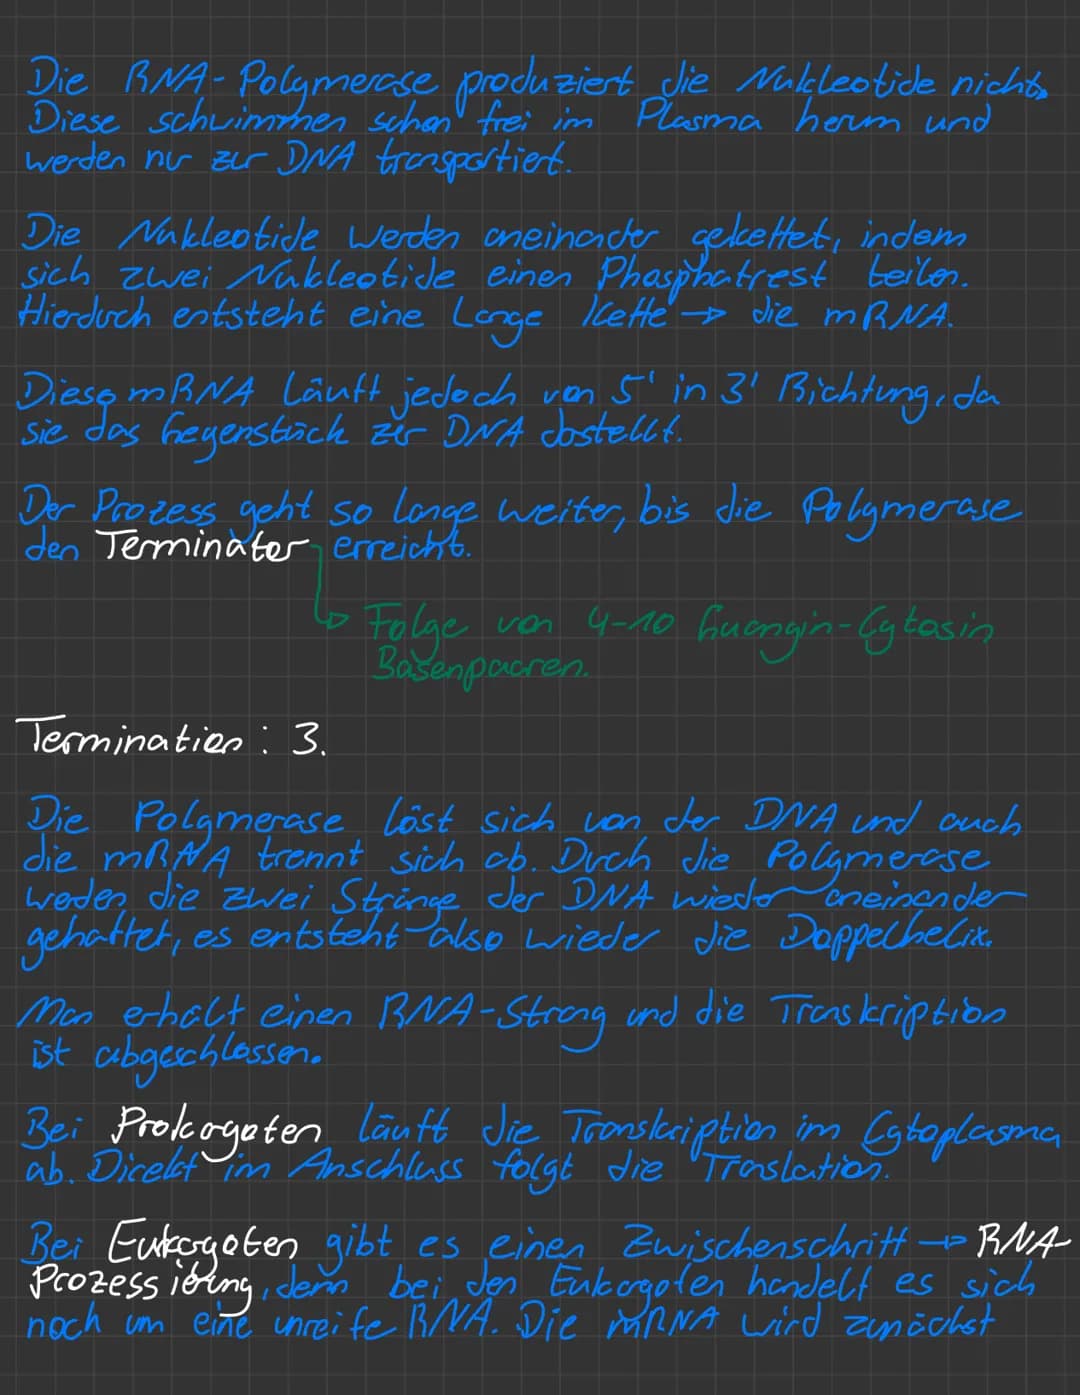 Die RNA-Polymerase produziert die Nukleotide nicht.
Diese schwimmen schon frei im Plasma herum und
werden nur zur DNA transportiert.
Die Nukleotide werden aneinander gekettet, indem
sich zwei Nukleotide einen Phosphatrest teilen.
Hierdurch entsteht eine Lange Kette → die mRNA.
Diese mRNA läuft jedoch von 5' in 3' Richtung, da
sie das Gegenstück zur DNA darstellt.
Der Prozess geht so lange weiter, bis die Polymerase
den Terminator erreicht.
Folge von 4-10 Guangin-Cytosin
Basenpaaren.
Termination: 3.
Die Polymerase löst sich von der DNA und auch
die mRNA trennt sich ab. Durch die Polymerase
werden die zwei Stränge der DNA wieder aneinander
gehaftet, es entsteht also wieder die Doppelhelix.
Man erhält einen RNA-Strang und die Transkription
ist abgeschlossen.
Bei Prokaryoten läuft die Transkription im Cytoplasma
ab. Direkt im Anschluss folgt die Translation.
Bei Eukaryoten gibt es einen Zwischenschritt → RNA-
Prozessierung, denn bei den Eukaryoten handelt es sich
noch um eine unreife RNA. Die mRNA wird zunächst